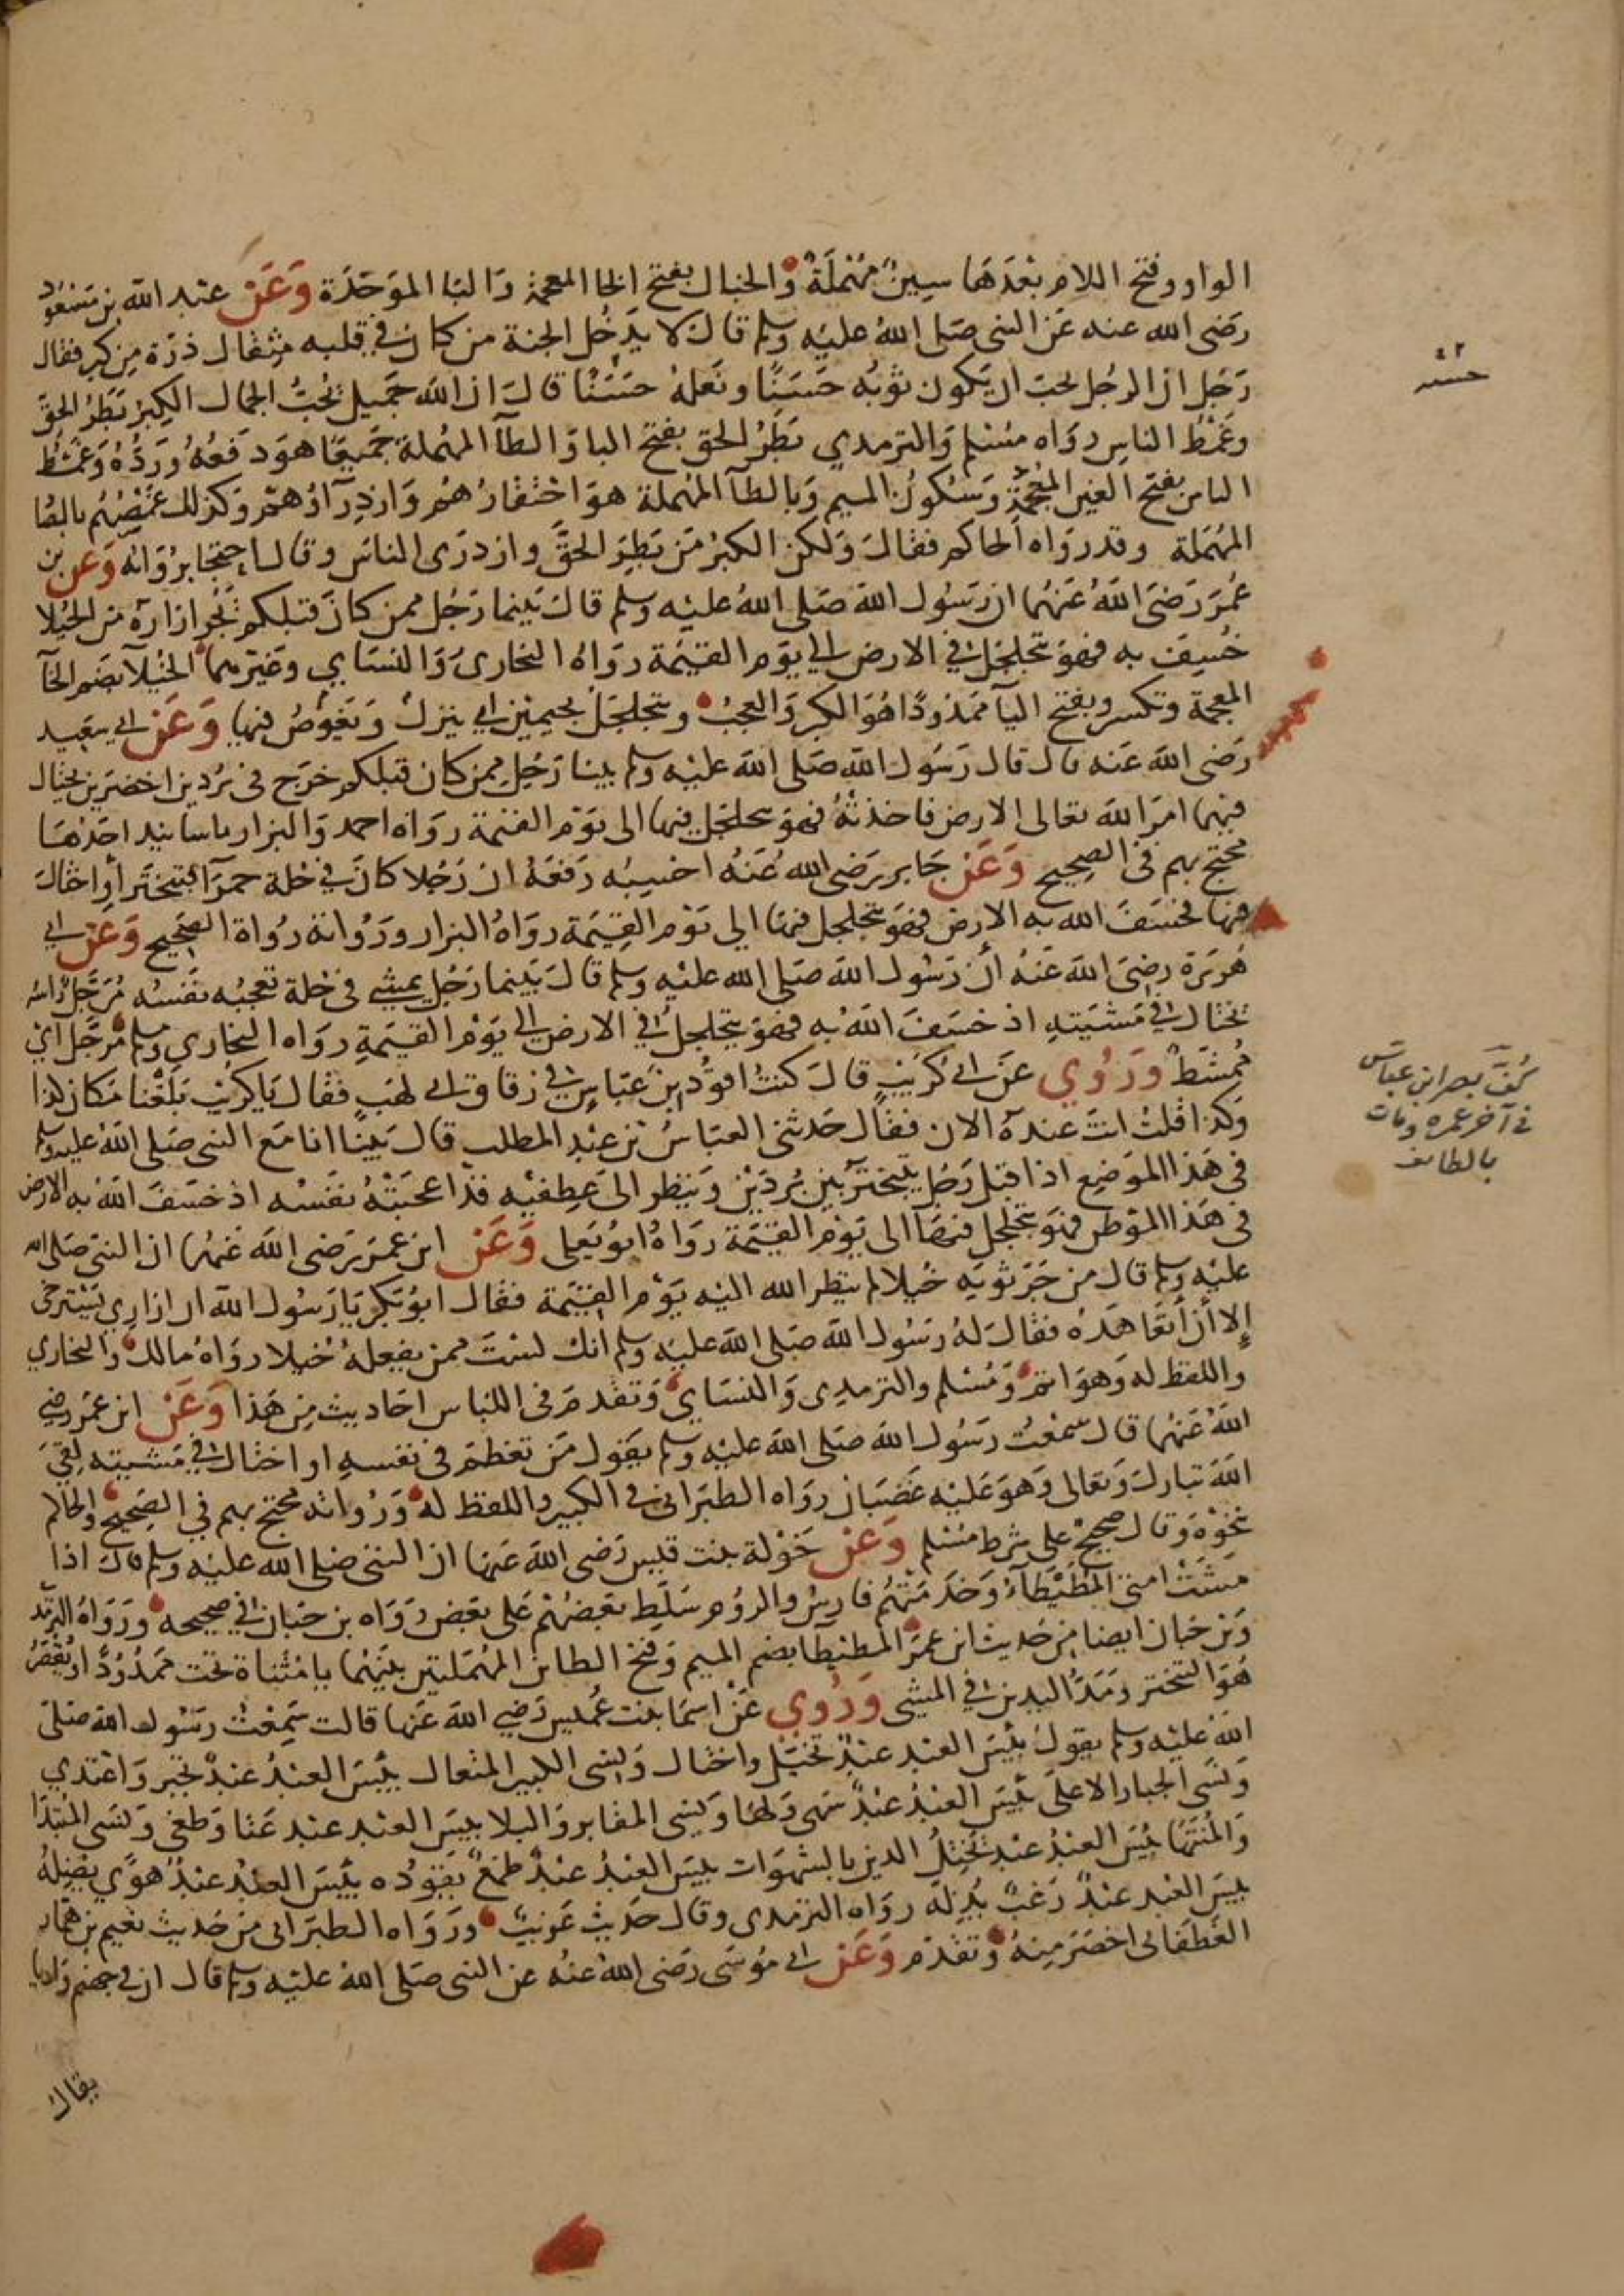 الواو وفتح اللام بعدها سين مهملة والخبال بفتح الخا المعجمة والبا الموحدة وعن عبد الله بن مسعود
رضى الله عنه عن النبى صلى الله عليه وسلم قال لا يدخل الجنة من كان فى قلبه مثقال ذرة من كبر فقال
رجل ان الرجل يحب ان يكون ثوبه حسنا ونعله حسنا قال ان الله جميل يحب الجمال الكبر بطر الحق
وغمط الناس رواه مسلم والترمدي بطر الحق بفتح البا والطآ المهملة جميعا هو دفعه ورده وغمط
الناس بفتح الغين المعجمة وسكون الميم وبالطآ المهملة هو احتقارهم وازدرآؤهم وكذلك غمصهم بالصا
المهملة وقد رواه الحاكم فقال ولكن الكبر من بطر الحق وازدرى الناس وقال احتجا برواته وعن بن
عمر رضى الله عنهما ان رسول الله صلى الله عليه وسلم قال بينما رجل ممن كان قبلكم يجر ازاره من الخيلا
خسف به فهو يتجلجل فى الارض الي يوم القيمة رواه البخارى والنسايي وغيرهما الخيلآ بضم الخآ
المعجمة وتكسر وبفتح اليآ ممدودا هو الكبر والعجب ويتجلجل بجيمين اي ينزل ويغوص فيها وعن ابي سعيد
رضى الله عنه قال قال رسول الله صلى الله عليه وسلم بينا رجل ممن كان قبلكم خرج فى بردين اخضرين يختال
فيهما امر الله تعالى الارض فاخذته فهو يتجلجل فيها الى يوم القيمة رواه احمد والبزار باسانيد احدها
محتج بهم فى الصحيح وعن جابر رضى الله عنه احسبه رفعه ان رجلا كان في حلة حمرآ فتبختر أو اختال
فيها فخسف الله به الارض فهو يتجلجل فيها الي يوم القيمة رواه البزار ورواته رواة الصحيح وعن ابي
هريرة رضى الله عنه أن رسول الله صلى الله عليه وسلم قال بينما رجل يمشي فى حلة تعجبه نفسه مرجل راسه
يختال فى مشيته اذ خسف الله به فهو يتجلجل فى الارض الي يوم القيمة رواه البخاري ومسلم مرجل اي
ممشط وروي عن ابي كريب قال كنت اقود بن عباس في زقاق ابي لهب فقال يا كريب بلغنا مكان كذا
وكذا قلت انت عنده الان فقال حدثنى العباس بن عبد المطلب قال بينا انا مع النبى صلى الله عليه وسلم
فى هذا الموضع اذا قبل رجل يتبختر بين بردين وينظر الى عطفيه قد اعجبته نفسه اذ خسف الله به الارض
فى هذا الموطن فهو يتجلجل فيها الى يوم القيمة رواه ابو يعلى وعن ابن عمر رضى الله عنهما ان النبى صلى الله
عليه وسلم قال من جر ثوبه خيلا لم ينظر الله اليه يوم القيمة فقال ابو بكر يا رسول الله ان ازاري يسترخى
إلا أن أتعاهده فقال له رسول الله صلى الله عليه وسلم انك لست ممن يفعله خيلا رواه مالك والبخاري
واللفظ له وهو اتم ومسلم والترمدى والنساي وتقدم فى اللباس احاديث من هذا وعن ابن عمر رضي
الله عنهما قال سمعت رسول الله صلى الله عليه وسلم يقول من تعظم فى نفسه او اختال فى مشيته لقى
الله تبارك وتعالى وهو عليه غضبان رواه الطبرانى فى الكبير واللفظ له ورواته محتج بهم في الصحيح والحاكم
بنحوه وقال صحيح على شرط مسلم وعن خولة بنت قيس رضى الله عنها ان النبى صلى الله عليه وسلم قال اذا
مشت امتى المطيطآء وخدمتهم فارس والروم سلط بعضهم على بعض رواه بن حبان فى صحيحه ورواه الترمد
وبن حبان ايضا من حديث ابن عمر المطيطا بضم الميم وفتح الطاين المهملتين بينهما يا مثناة تحت ممدودا او يقصر
هو التبختر ومد اليدين فى المشى وروي عن اسما بنت عميس رضي الله عنها قالت سمعت رسول الله صلى
الله عليه وسلم يقول بئس العبد عبد تخيل واختال ونسى الكبير المتعال بئس العبد عبد تجبر واعتدي
ونسى الجبار الاعلى بئس العبد عبد سهى ولها ونسى المقابر والبلا بيس العبد عبد عتا وطغى ونسى المبتدا
والمنتها بئس العبد عبد يختل الدين بالشهوات بيس العبد عبد طمع يقوده بئس العبد عبد هوى يضله
بيس العبد عبد رغب يذله رواه الترمدى وقال حديث غريب ورواه الطبرانى من حديث نعيم بن همار
الغطفانى اخصر منه وتقدم وعن ابي موسى رضى الله عنه عن النبى صلى الله عليه وسلم قال ان فى جهنم واديا
يقال
كف بصر ابن عباس
فى آخر عمره ومات
بالطائف